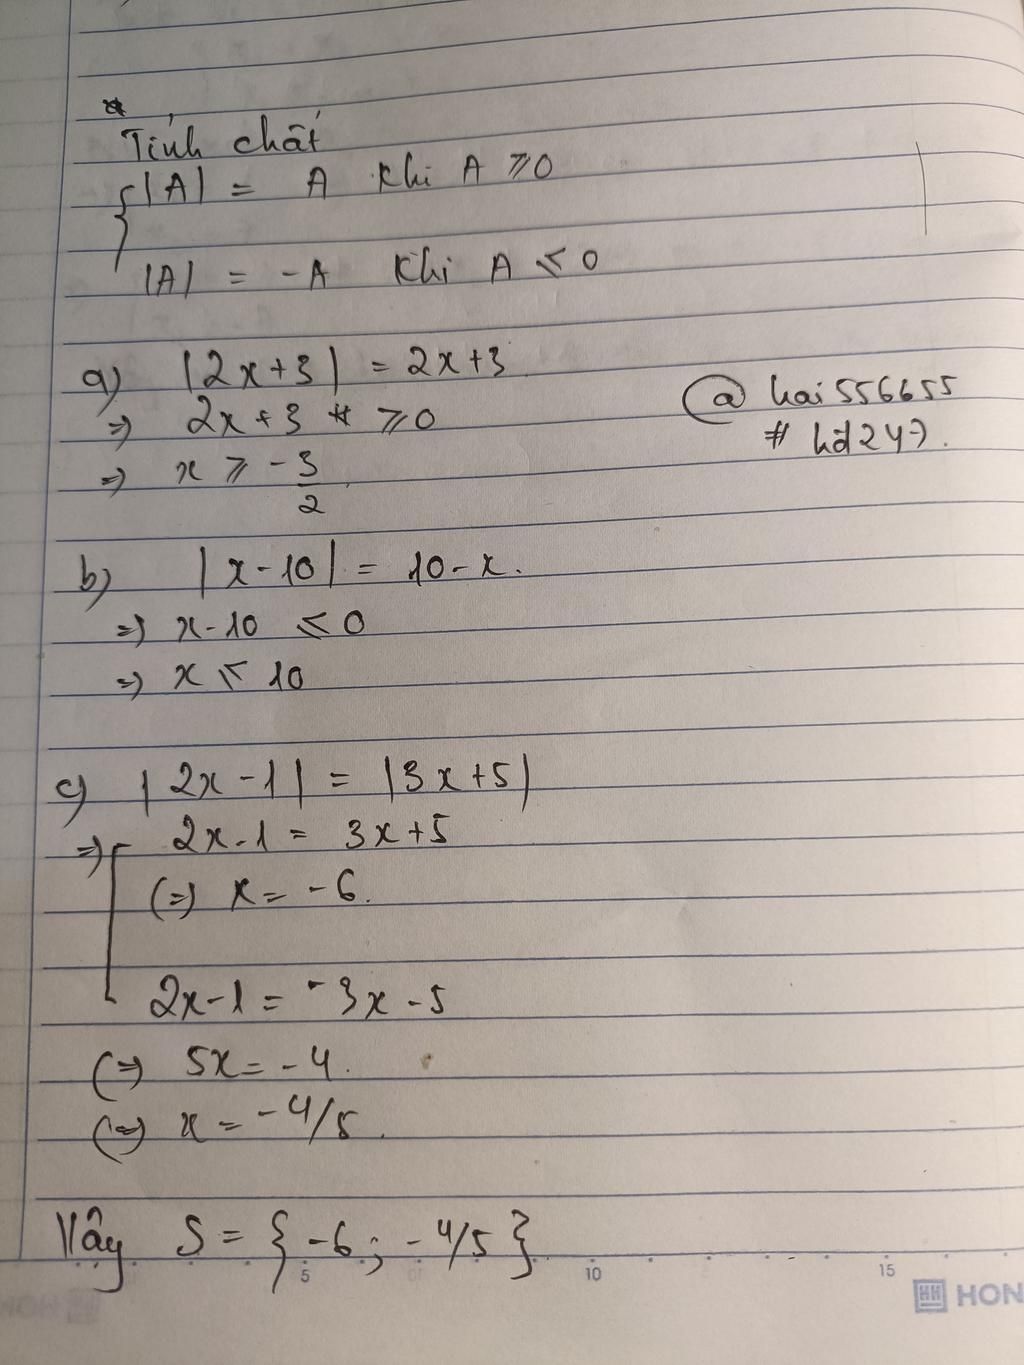 Tính chất
|A| = A khi A ⩾ 0
|A| = -A khi A ⩽ 0
a) |2x+3| = 2x+3
⇒ 2x+3 ⩾ 0
⇒ x ⩾ -3/2
@hai556655
# hd247.
b) |x-10| = 10-x.
⇒ x-10 ⩽ 0
⇒ x ⩽ 10
c) |2x-1| = |3x+5|
⇒ 2x-1 = 3x+5
(⇒) x = -6.
2x-1 = -3x-5
(⇒) 5x = -4.
(⇒) x = -4/5.
Vây S = {-6; -4/5}
5 10 15
HON